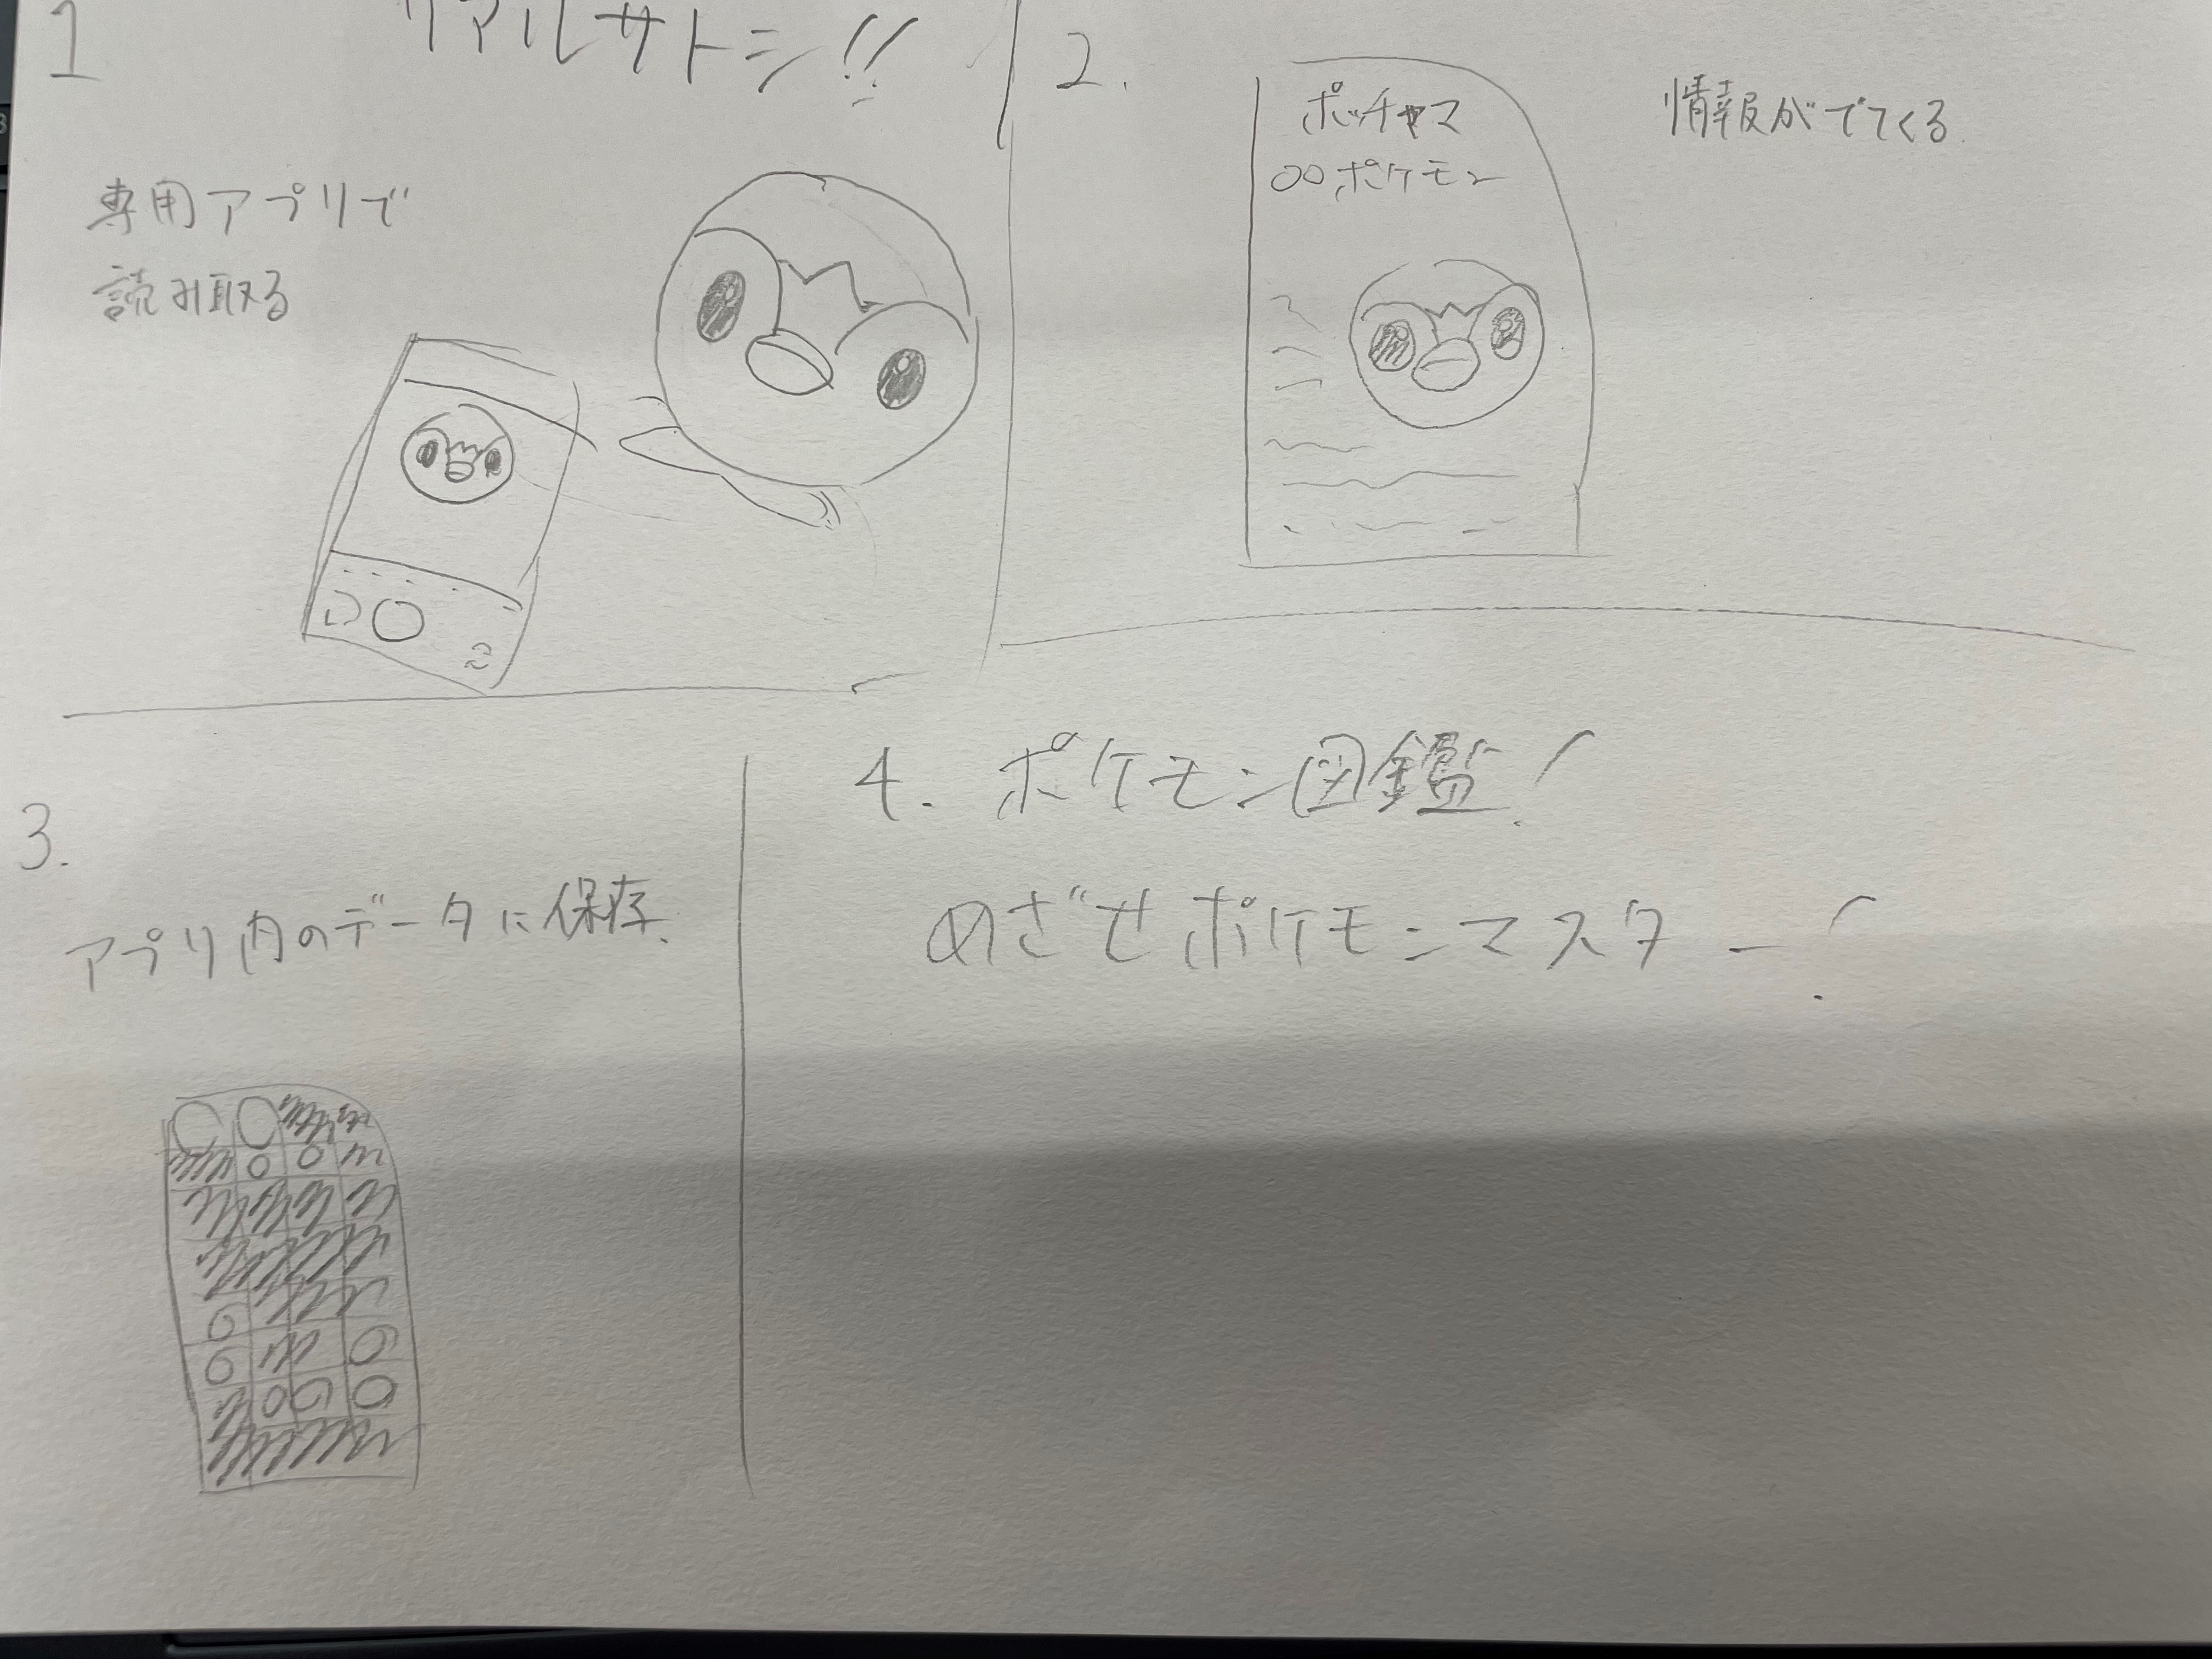 1
リアルサトシ!!
専用アプリで
読み取る
2.
ポッチャマ
○○ポケモン
情報がでてくる
3.
アプリ内のデータに保存.
4. ポケモン図鑑!
めざせポケモンマスター!